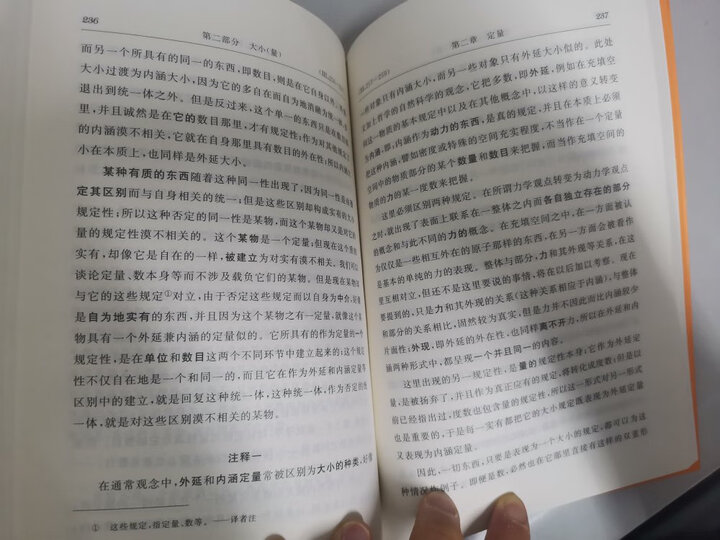 236
第二部分 大小(量)
而另一个所具有的同一的东西,即数目,则是在它自身以内
大小过渡为内涵大小,因为它的多自在而自为地消融为统一
退出到统一体之外。但是反过来,这个单一的东西只是在
里,并且诚然是在它的数目那里,才有规定性;作为对其他
的内涵漠不相关,它就在自身那里具有数目的外在性;所以
小在本质上,也同样是外延大小。
某种有质的东西随着这种同一性出现了,因为同一性是由
定其区别而与自身相关的统一;但是这些区别却构成实有的大小
规定性;所以这种否定的同一性是某物,而这个某物却又是对它的
量的规定性漠不相关的。这个某物是一个定量;但现在这个质的
实有,却像它是自在的一样,被建立为对实有漠不相关。我们可以
谈论定量、数本身等而不涉及载负它们的某物。但是现在某物
与它的这些规定①对立,由于否定这些规定而以自身为中介,
是自为地实有的东西,并且因为这个某物之有一定量,就像这个某
物具有一个外延兼内涵的定量似的。它所具有的作为定量的一个
规定性,是在单位和数目这两个不同环节中建立起来的;这个规定
性不仅自在地是一个和同一的,而且它在作为外延和内涵定量等
区别中的建立,就是回复这种统一体,这种统一体,作为否定的统
一体,就是对这些区别漠不相关的某物。
注释一
在通常观念中,外延和内涵定量常被区别为大小的种类,
① 这些规定,指定量、数等。——译者注
237
第二章 定量
些对象只有内涵大小,而另一些对象只有外延大小似的。此处
又加上哲学的自然科学的观念,它把多数,即外延,例如在充填空
间这一物质的基本规定中以及在其他概念中,以这样的意义转变
为内涵,即:内涵作为动力的东西,是真的规定,并且在本质上必须
把这种内涵,譬如密度或特殊的空间充实程度,不当作在一个定量
空间中的物质部分的某个数量和数目来把握,而当作充填空间的
物质的力的某一度数来把握。
这里必须区别两种规定。在所谓力学观点转变为动力学观点
之时,就出现了表面上联系在一整体之内而各自独立存在的部分
的概念和与此不同的力的概念。在充填空间之中,在一方面被认
为仅仅是一些相互外在的原子那样的东西,在另一方面会被看作
是基本的单纯的力的表现。整体与部分,力和其外现等关系,在这
里互相对立,但还不是这里要说的事情,将在以后加以考察。现在
要提到的,只是力和其外现的关系(这种关系相应于内涵),与整体
和部分的关系相比,固然较为真实,但是力并不因此而比内涵较少
片面性;外现,即外延的外在性,也同样离不开力,所以在外延和内
涵两种形式中,都呈现一个并且同一的内容。
这里出现的另一规定性,是量的规定性本身;它作为外延定
量,是被扬弃了,并且作为真正应有的规定,将转化成度数;但是以
前已经指出过,度数也包含量的规定性,所以这一形式对另一形式
也是重要的,于是每一实有都把它的大小规定既表现为外延定量
又表现为内涵定量。
因此,一切东西,只要是表现为一个大小的规定,都可以为这
种情况作例子。即便是数,必然也在它那里直接有这样的双重形